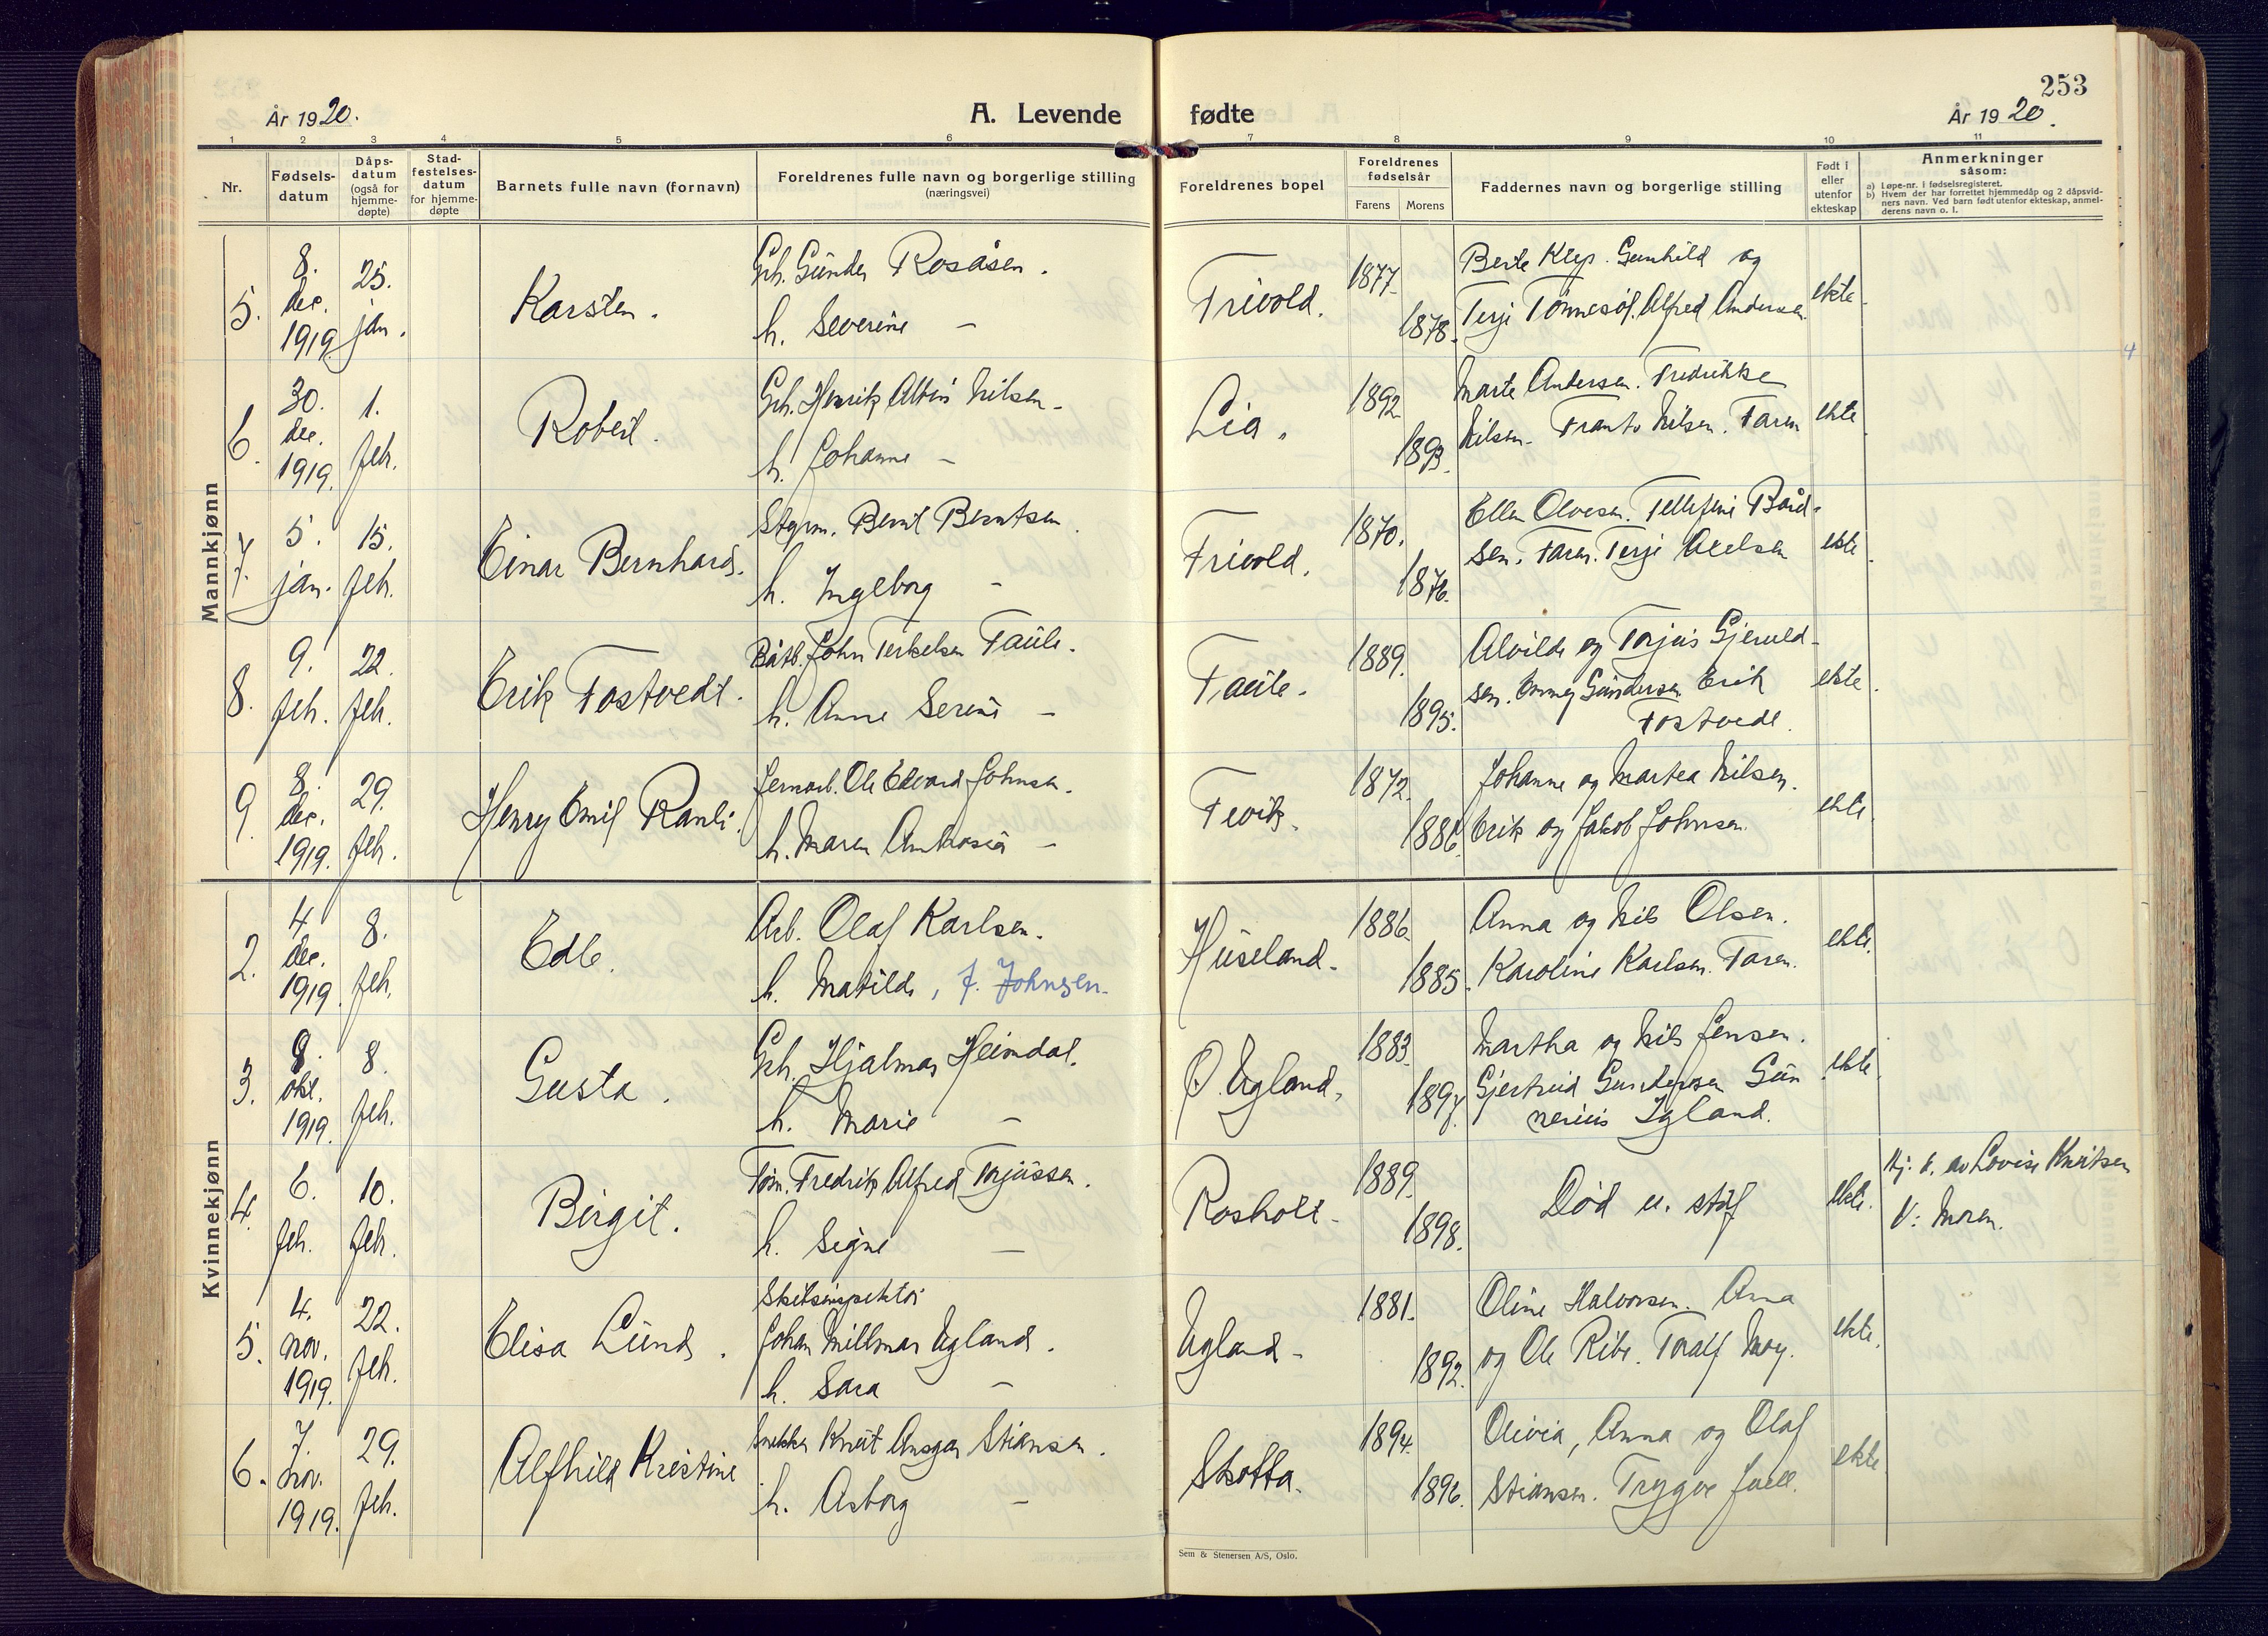 253
År 1920.
A. Levende fødte
År 1920.
1 2 3 4 5 6 7 8 9 10 11
Nr.
Fødsels-
datum
Dåps-
datum
(også for
hjemme-
døpte)
Stad-
festelses-
datum
for hjemme-
døpte
Barnets fulle navn (fornavn)
Foreldrenes fulle navn og borgerlige stilling
(næringsvei)
Foreldrenes bopel
Foreldrenes
fødselsår
Farens Morens
Faddernes navn og borgerlige stilling
Født i
eller
utenfor
ekteskap
Anmerkninger
såsom:
a) Løpe-nr. i fødselsregisteret.
b) Hvem der har forrettet hjemmedåp og 2 dåpsvid-
ners navn. Ved barn født utenfor ekteskap, anmel-
derens navn o. l.
Mannkjønn
5.
8.
dec.
1919
25.
jan.
Karsten.
Gbr. Gunder Rosåsen.
h. Severine –
Trivold.
1877.
1878.
Berte Klep. Gunhild og
Terje Tønnesøl. Alfred Andersen.
ekte.
6.
30.
dec.
1919.
1.
feb.
Robert.
Gbr. Henrik Albin Nilsen.
h. Johanne –
Lia.
1892
1893.
Marte Andersen. Fredrikke
Nilsen. Frants Nilsen. Faren
ekte
7.
5.
jan.
15.
feb.
Einar Bernhard.
Styrm. Bernt Berntsen.
h. Ingeborg –
Trivold.
1870.
1876.
Ellen Olvesen. Tellefine Bård-
sen. Faren. Terje Axelsen
ekte.
8.
9.
feb.
22.
feb.
Erik Tostvedt.
Båtb. John Terkelsen Taule.
h. Anne Serine –
Taule.
1889.
1895.
Alvilde og Torjus Gjeruld-
sen. Emmy Gundersen Erik
Tostvedt.
ekte.
9.
8.
dec.
1919.
29.
feb.
Henry Emil Ranli.
Jernarb. Ole Edvard Johnsen.
h. Maren Ambrosia –
Fevik.
1872.
1886.
Johanne og Martea Nilsen.
Erik og Jakob Johnsen.
ekte
Kvinnekjønn
2.
4
dec.
1919.
8.
feb.
Edle.
Arb. Olaf Karlsen.
h. Matilde, f. Johnsen.
Huseland.
1886.
1885.
Anna og Nils Olsen.
Karoline Karlsen. Faren.
ekte.
3.
8.
okt.
1919.
8.
feb.
Gusta.
Gbr. Hjalmar Heimdal.
h. Marie –
Ø. Ugland.
1883.
1897.
Martha og Nils Jensen.
Gjertrud Gundersen Gun
nerius Igland.
ekte.
4.
6.
feb.
10.
feb.
Birgit.
Tøm. Fredrik Alfred Torjussen.
h. Signe –
Rosholt.
1889.
1898.
Død u. st.
ekte.
Hj. d. av Lovise Knutsen
V: Moren.
5.
4.
nov.
1919.
22.
feb.
Elisa Lund.
Skibsinspektør
Johan Millmar Ugland.
h. Sara –
Ugland.
1881.
1892.
Oline Halvorsen. Anna
og Ole Ribe. Toralf Moy.
ekte.
6.
7.
nov.
1919.
29.
feb.
Alfhild Kristine
Snekker Knut Ansgar Stiansen.
h. Asborg –
Skotta.
1894.
1896.
Olivia, Anna og Olaf
Stiansen. Trygve Juell.
ekte.
4
Sem & Stenersen A/S, Oslo.